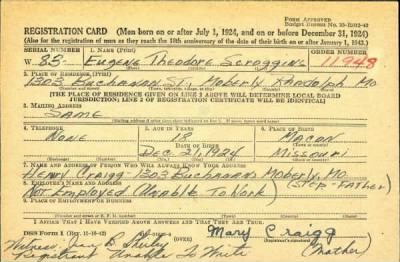 Form Approved
Budget Bureau No. 33-R012-42
REGISTRATION CARD (Men born on or after July 1, 1924, and on or before December 31, 1924)
(Also for the registration of men as they reach the 18th anniversary of the date of their birth on or after January 1, 1943.)
SERIAL NUMBER 1. NAME (Print) ORDER NUMBER
W 83- Eugene Theodore Scroggins 11948
2. PLACE OF RESIDENCE (Print)
1303 Buchanan St. Moberly Randolph Mo
[THE PLACE OF RESIDENCE GIVEN ON LINE 2 ABOVE WILL DETERMINE LOCAL BOARD
JURISDICTION; LINE 2 OF REGISTRATION CERTIFICATE WILL BE IDENTICAL]
3. MAILING ADDRESS
SAME
4. TELEPHONE
None 18 Macon
Dec 21, 1924 Missouri
7. NAME AND ADDRESS OF PERSON WHO WILL ALWAYS KNOW YOUR ADDRESS
Henry Craigg - 1303 Buchanans Moberly, Mo.
8. EMPLOYER'S NAME AND ADDRESS (Step-Father)
Not Employed (Unable To Work)
9. PLACE OF EMPLOYMENT OR BUSINESS
I AFFIRM THAT I HAVE VERIFIED ABOVE ANSWERS AND THAT THEY ARE TRUE.
DSS Form 1 (Rev. 11-16-42) (OVER) Mary Craigg
Witness, B.
Registrant Unable To Write (Mother)